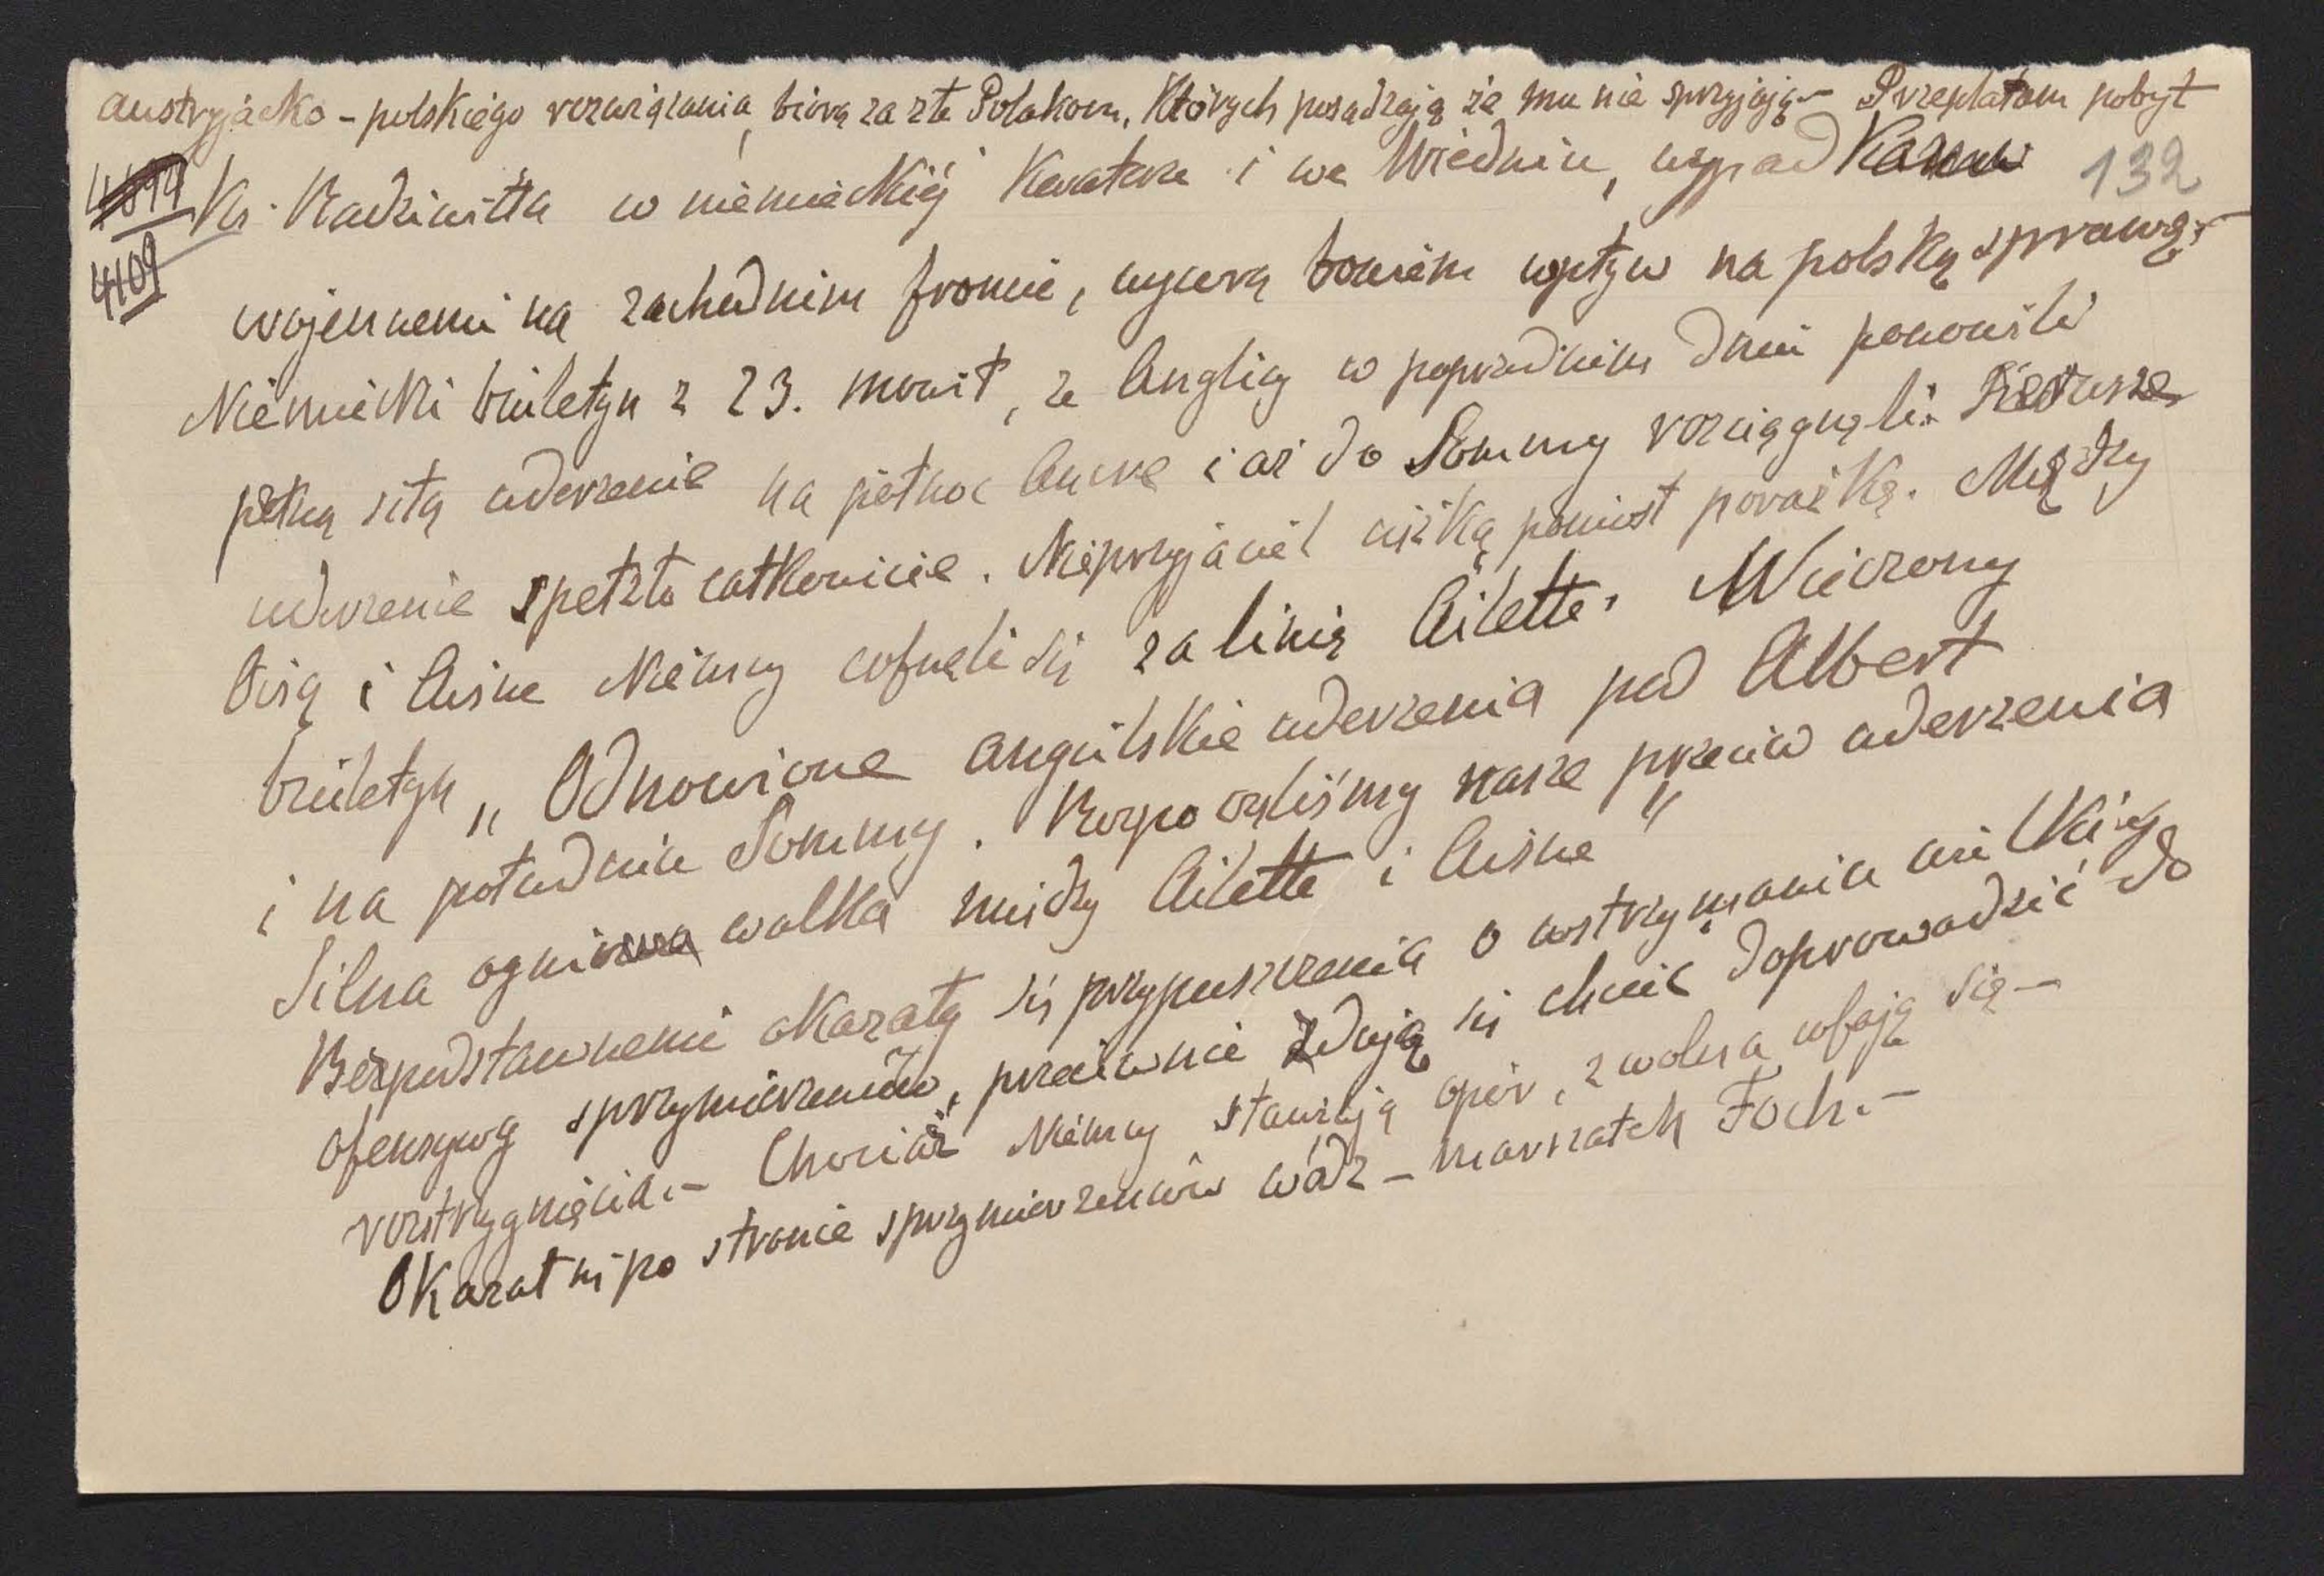 austryjacko - polskiego rozwiązania, biorą za złe Polakom, których posądzają że mu nie sprzyjają - Przeplatam pobyt
132
4109
Ks. Radziwiłła w niemieckiéj kwaterze i we Wiedniu,
wojennemi na zachodnim froncie, wywrą bowiem wpływ na polską sprawę. -
Niemiecki biuletyn z 23. mówił, że Anglicy w poprzednim dniu ponowili
pełną siłą uderzenie na północ Ancre i aż do Sommy rozciągnęli. Pierwsze
uderzenie spełzło całkowicie. Nieprzyjaciel ciężką poniósł porażkę. Między
Oisą i Aisne Niemcy cofnęli się za linię Ailette. Wieczorny
biuletyn „Odnowione angielskie uderzenia pod Albert
i na południu Sommy. Rozpoczęliśmy nasze przeciw uderzenia
Silna ogniowa walka między Ailette i Aisne"
Bezpodstawnemi okazały się przypuszczenia o wstrzymaniu wielkiéj
ofensywy sprzymierzeńców, przeciwnie zdają się chcieć doprowadzić do
rozstrzygnięcia. - Chociaż Niemcy stawiają opór, zwolna cofają się -
Okazał się po stronie sprzymierzeńców wódz - marszałek Foch. -